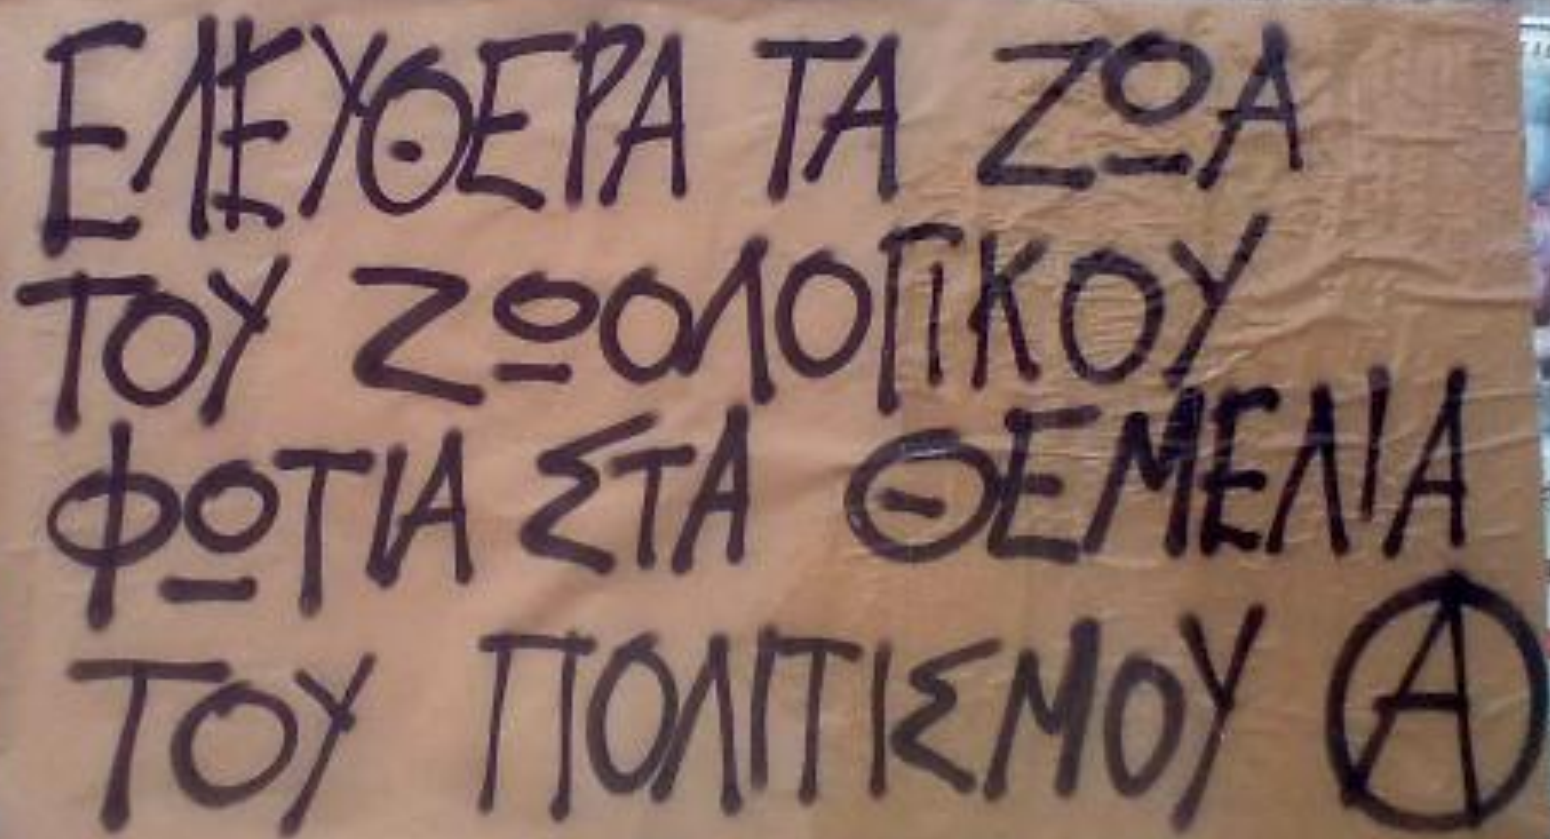 ΕΛΕΥΘΕΡΑ ΤΑ ΖΩΑ
ΤΟΥ ΖΩΟΛΟΓΙΚΟΥ
ΦΩΤΙΑ ΣΤΑ ΘΕΜΕΛΙΑ
ΤΟΥ ΠΟΛΙΤΙΣΜΟΥ Ⓐ